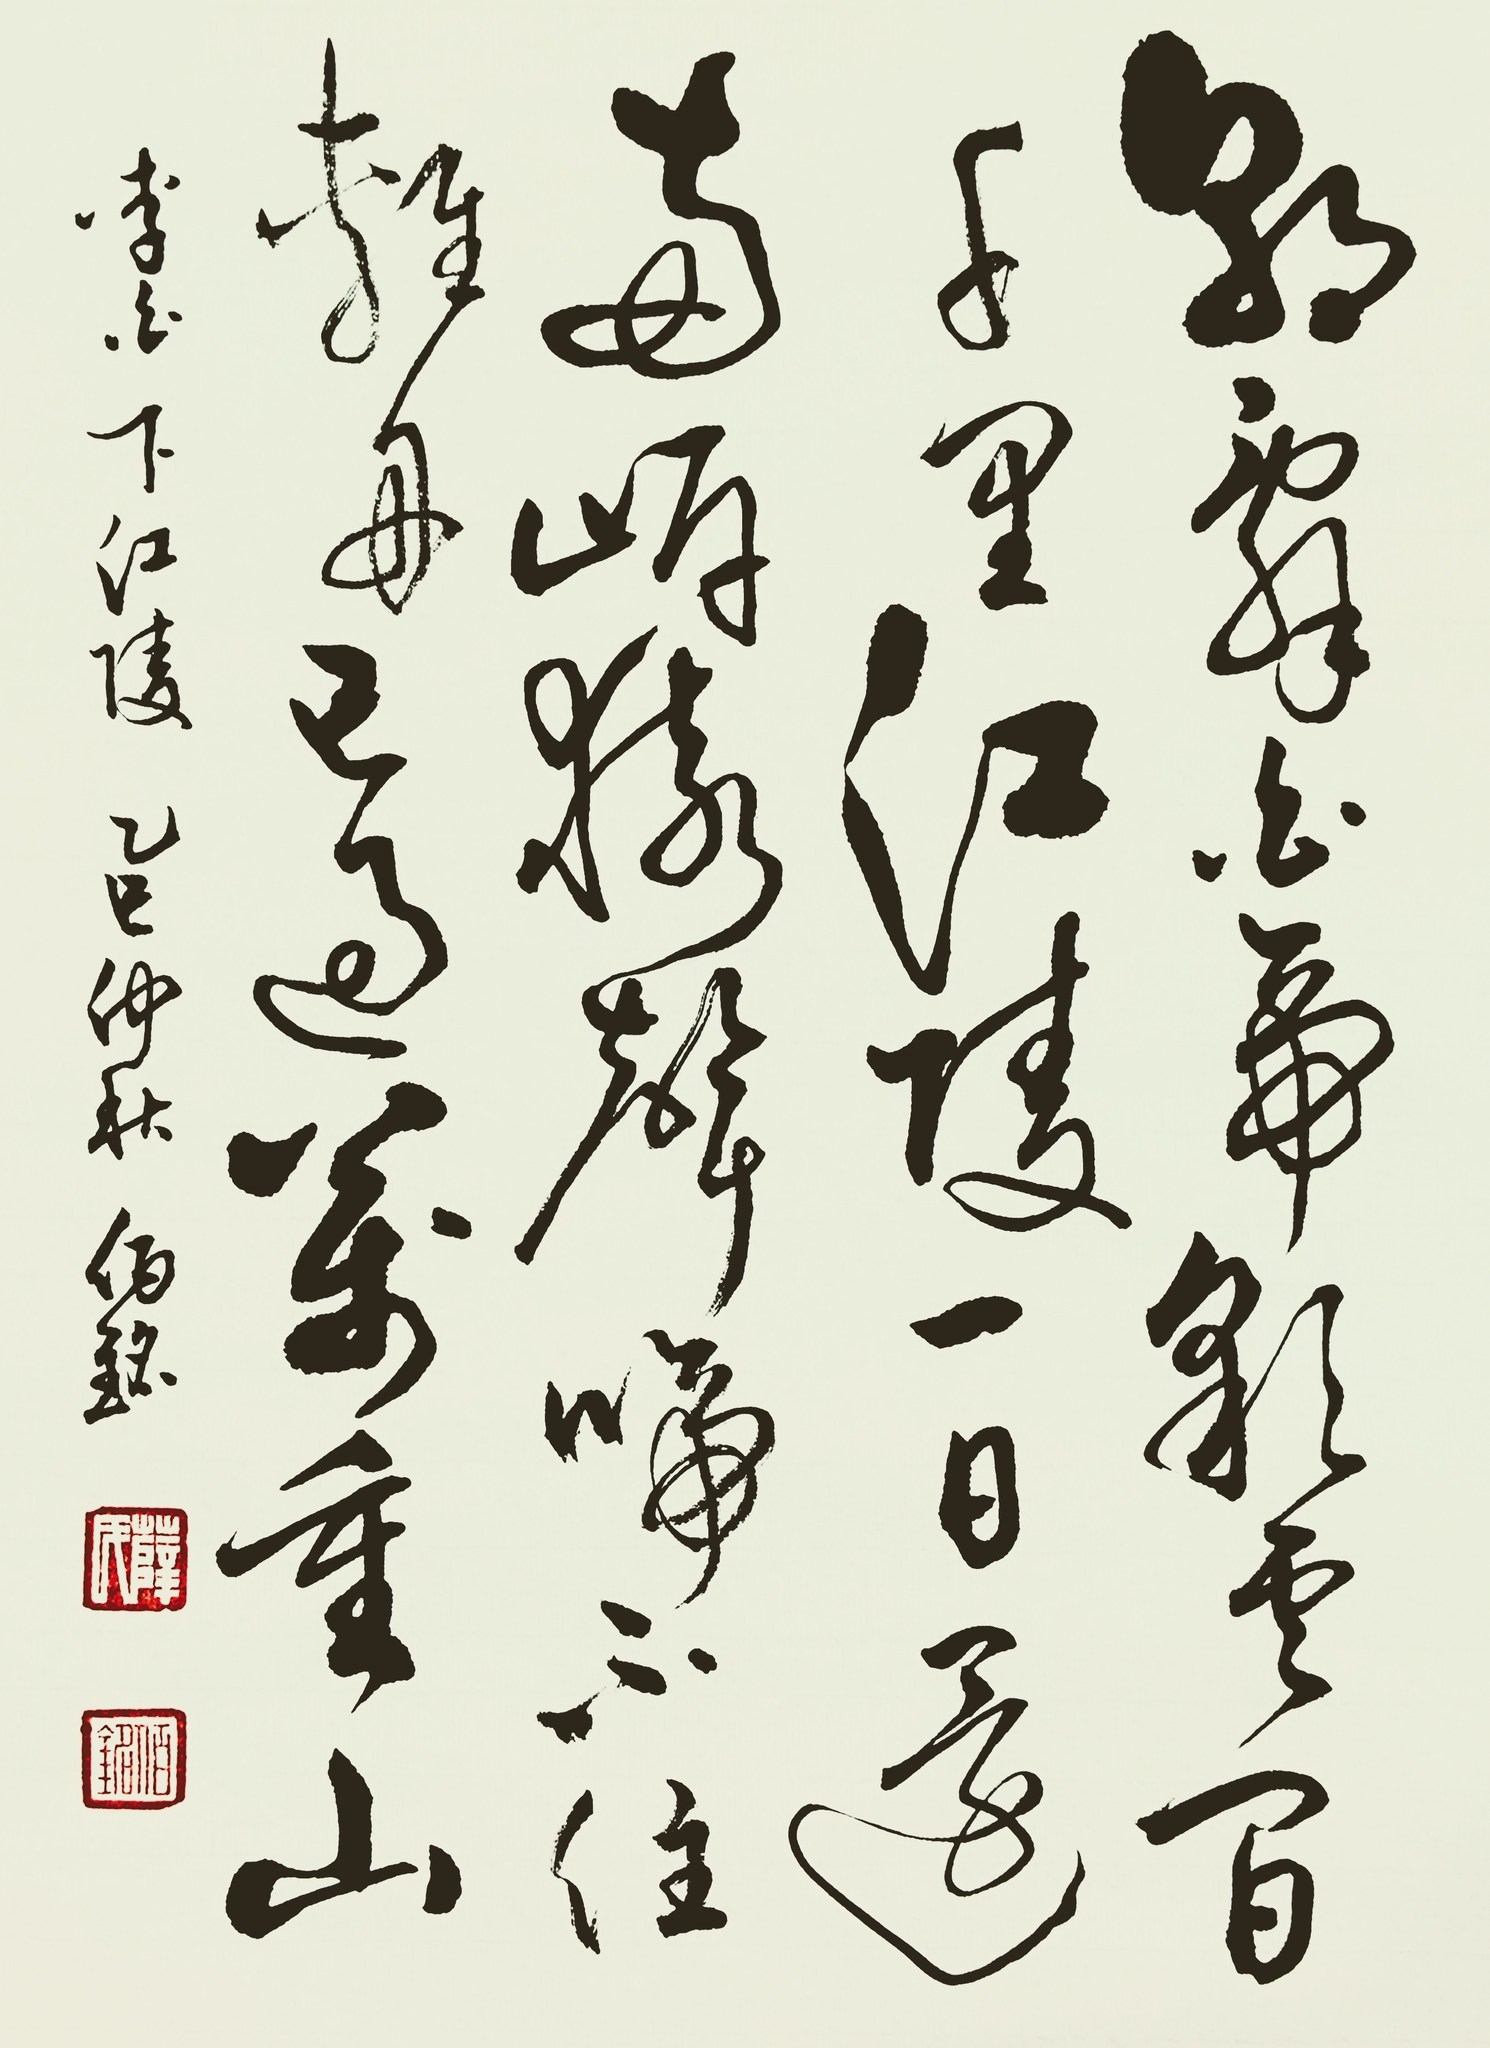 朝辭白帝彩雲間
千里江陵一日還
兩岸猿聲啼不住
輕舟已過萬重山
李白下江陵 乙巳仲秋 伯銘
薛氏
伯銘